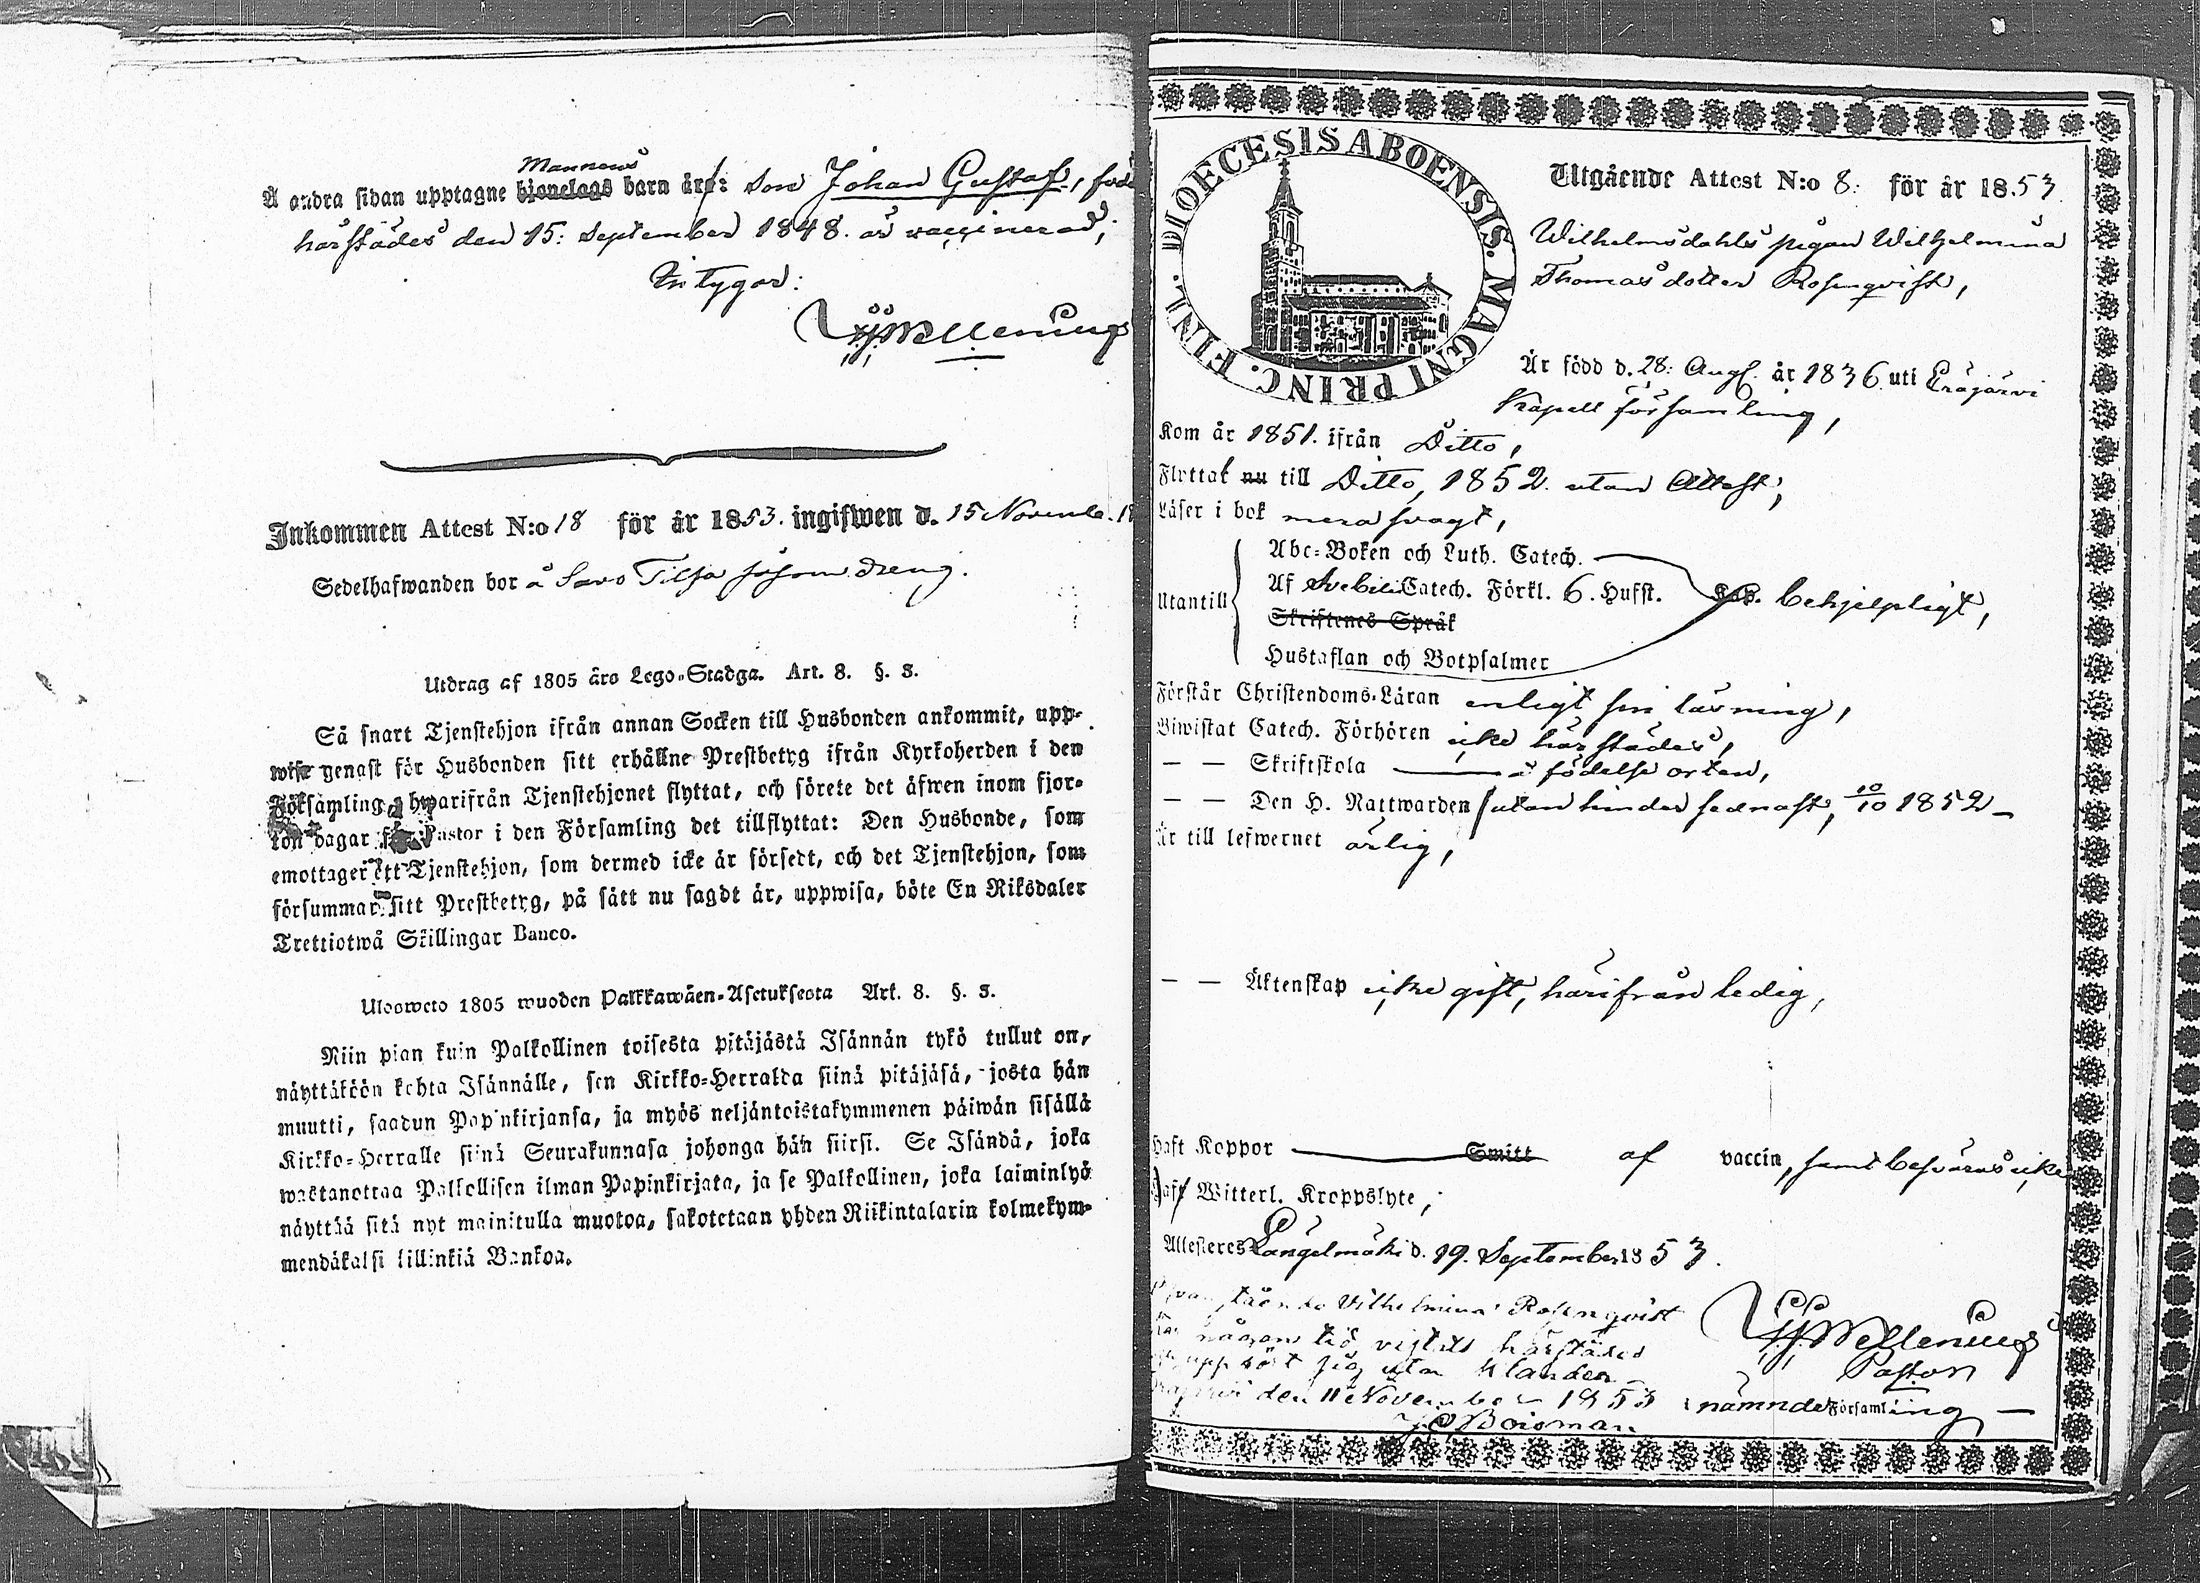 Mannens
Å andra sidan upptagne hjonelags barn äro: son Johan Gustaf, född
härstädes den 15: September 1848. är vaccinerad;
Intygar:
Wellenius
Inkommen Attest N:o 18 för år 1853. ingifwen d. 15 Novemb. 18
Sedelhafwanden bor å Savo Tilsa såsom dreng.
Utdrag af 1805 års Lego-Stadga. Art. 8. §. 3.
Så snart Tjenstehjon ifrån annan Socken till Husbonden ankommit, upp-
wise genast för Husbonden sitt erhållne Prestbetyg ifrån Kyrkoherden i den
Församling, hwarifrån Tjenstehjonet flyttat, och förete det äfwen inom fjor-
ton dagar för Pastor i den Församling det tillflyttat: Den Husbonde, som
emottager ett Tjenstehjon, som dermed icke är försedt, och det Tjenstehjon, som
försummar sitt Prestbetyg, på sätt nu sagdt är, uppwisa, böte En Riksdaler
Trettiotwå Skillingar Banco.
Ulosweto 1805 wuoden Palkkawäen-Asetuksesta Art. 8. §. 3.
Niin pian kuin Palkollinen toisesta pitäjästä Isännän tykö tullut on,
näyttäköön kohta Isännälle, sen Kirkko-Herralda siinä pitäjäsä, josta hän
muutti, saadun Papinkirjansa, ja myös neljäntoistakymmenen päiwän sisällä
Kirkko-Herralle siinä Seurakunnasa johonga hän siirsi. Se Isändä, joka
wastanottaa Palkollisen ilman Papinkirjata, ja se Palkollinen, joka laiminlyö
näyttää sitä nyt mainitulla muotoa, sakotetaan yhden Riikintalarin kolmekym-
mendäkaksi killinkiä Bankoa.
DIOECESIS ABOENSIS. MAGNI PRINC. FINL.
Utgående Attest N:o 8: för år 1853.
Wilhelmsdahls pigan Wilhelmina
Thomasdotter Rosenqvist,
Är född d. 28: Aug. år 1836 uti Eräjärvi
Kapell församling,
Kom år 1851. ifrån Ditto,
Flyttat nu till Ditto, 1852. utan Attest;
Läser i bok mera svagt,
Abc-Boken och Luth. Catech.
Utantill Af Svebilii Catech. Förkl. 6. Hufst. Cap. behjelpligt,
Skriftenes Språk
Hustaflan och Botpsalmer
Förstår Christendoms-Läran enligt sin läsning,
Biwistat Catech. Förhören icke härstädes,
— — Skriftskola i födelse orten,
— — Den H. Nattwarden utan hinder sednast, 10/10 1852 —
Är till lefwernet ärlig,
— — Äktenskap icke gift, härifrån ledig,
Haft Koppor Smitt af vaccin, samt besväras icke
af Witterl. Kroppslyte;
Attesteres Längelmäki d. 19. September 1853.
Wilhelmina Rosenqvist
någon tid vistats härstädes
uppfört sig utan klander
den 11 November 1853
J. E. Boisman
Wellenius
Pastor
i nämnde Församling —